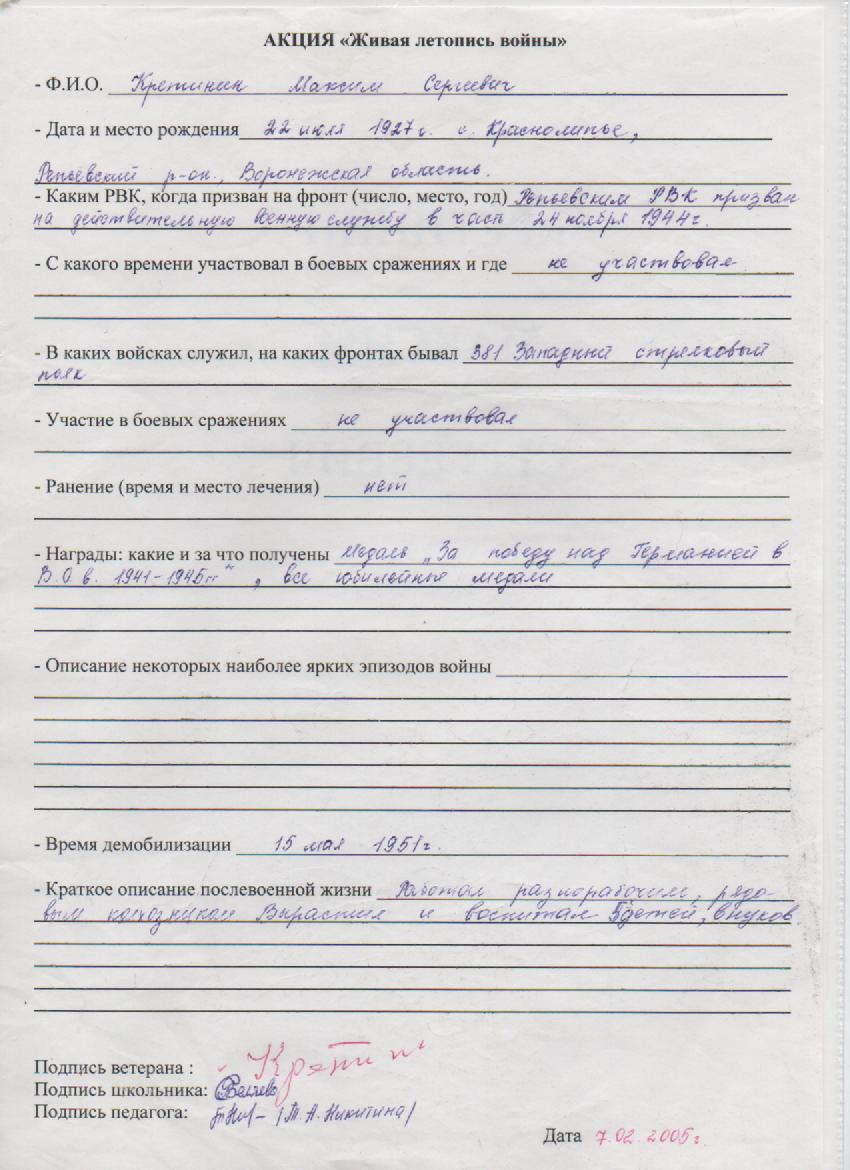 АКЦИЯ «Живая летопись войны»
- Ф.И.О. Кретинин Максим Сергеевич
- Дата и место рождения 22 июля 1927 г. с. Краснолипье,
Репьёвский р-он., Воронежская область.
- Каким РВК, когда призван на фронт (число, место, год) Репьевским РВК призван
на действительную военную службу в часть 24 ноября 1944 г.
- С какого времени участвовал в боевых сражениях и где не участвовал
- В каких войсках служил, на каких фронтах бывал 381 Западный стрелковый
полк
- Участие в боевых сражениях не участвовал
- Ранение (время и место лечения) нет
- Награды: какие и за что получены Медаль „За победу над Германией в
В.О.в. 1941-1945гг", все юбилейные медали
- Описание некоторых наиболее ярких эпизодов войны
- Время демобилизации 15 мая 1951г.
- Краткое описание послевоенной жизни Работал разнорабочим, рядо-
вым колхозником Вырастил и воспитал 5 детей, внуков.
Подпись ветерана : Кретин
Подпись школьника:
Подпись педагога: (Т.А.Никитина)
Дата 7.02.2005г.